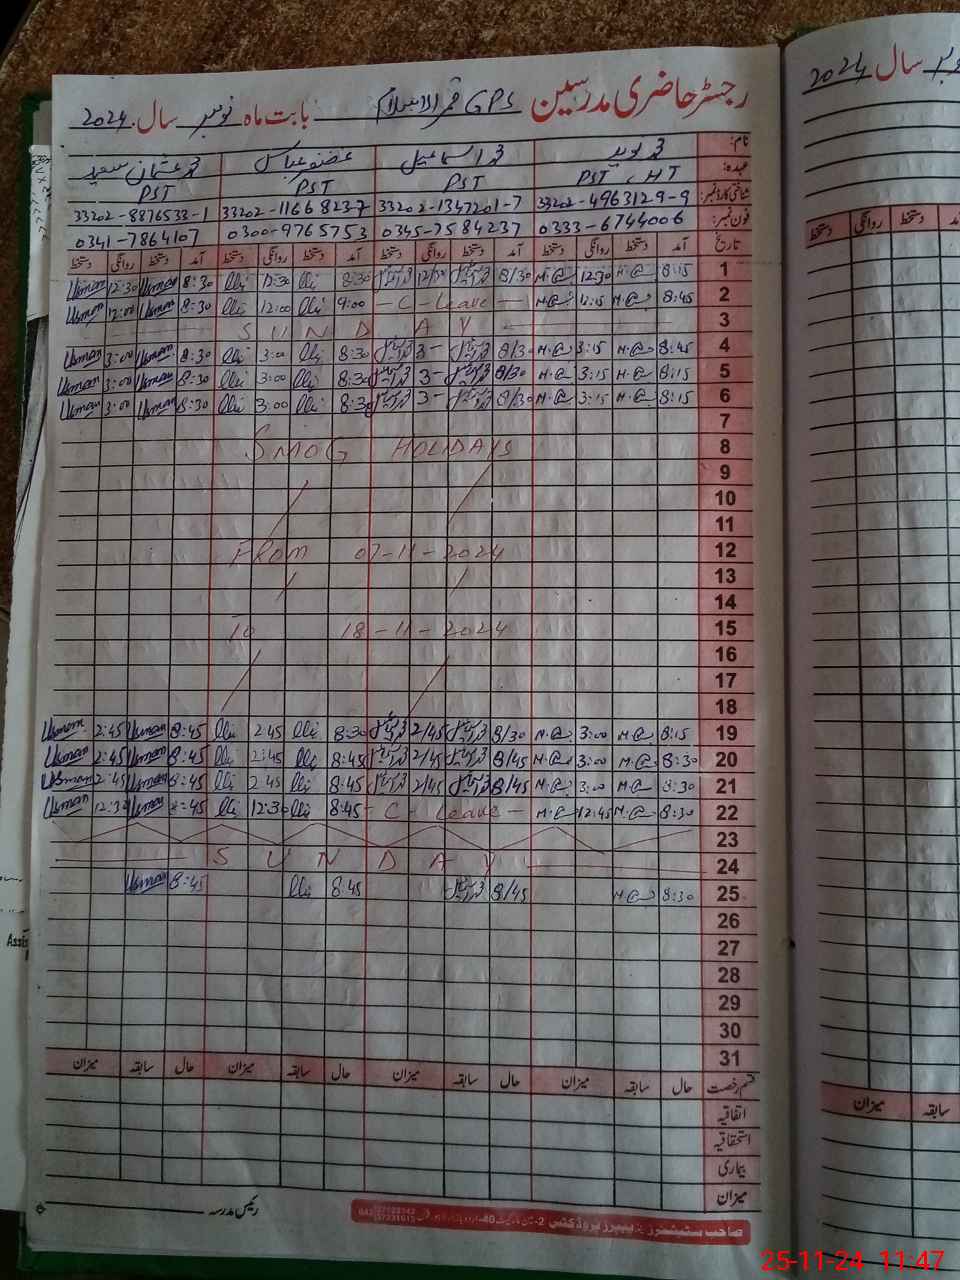 رجسٹر حاضری مدرسین GPS قمر الاسلام بابت ماہ نومبر سال 2024
نام: محمد نوید محمد اسماعیل غضنفر عباس محمد عثمان سعید
عہدہ: PST , HT PST PST PST
شناختی کارڈ نمبر: 33202-4963129-9 33202-1347201-7 33202-1166823-7 33202-8876533-1
فون نمبر: 0333-6744006 0345-7584237 0300-9765753 0341-7864107
تاریخ آمد دستخط روانگی دستخط آمد دستخط روانگی دستخط آمد دستخط روانگی دستخط آمد دستخط روانگی دستخط
1 8:15 12:30 8/30 8:30 12:30 8:30 Usman 12:30 Usman
2 8:45 12:15 - C - Leave - 9:00 12:00 8:30 Usman 12:00 Usman
3 S U N D A Y
4 8:45 3:15 8/30 3- 8:30 3:00 8:30 Usman 3:00 Usman
5 8:15 3:15 8/30 3- 8:30 3:00 8:30 Usman 3:00 Usman
6 8:15 3:15 8/30 3- 8:30 3:00 8:30 Usman 3:00 Usman
7
8 SMOG HOLIDAYS
9
10
11
12 FROM 07-11-2024
13
14
15 To 18-11-2024
16
17
18
19 8:15 3:00 8/30 2/45 8:30 2:45 8:45 Usman 2:45 Usman
20 8:30 3:00 8/45 2/45 8:45 2:45 8:45 Usman 2:45 Usman
21 8:30 3:00 8/45 2/45 8:45 2:45 8:45 Usman 2:45 Usman
22 8:30 12:45 - C - Leave - 8:45 12:30 8:45 Usman 12:30 Usman
23
24 S U N D A Y
25 8:30 8/45 8:45 8:45 Usman
26
27
28
29
30
31
قسم رخصت حال سابقہ میزان حال سابقہ میزان حال سابقہ میزان حال سابقہ میزان
اتفاقیہ
استحقاقیہ
بیماری
میزان
رئیس مدرسہ
سال 2024
دستخط روانگی دستخط
سابقہ میزان
25-11-24 11:47